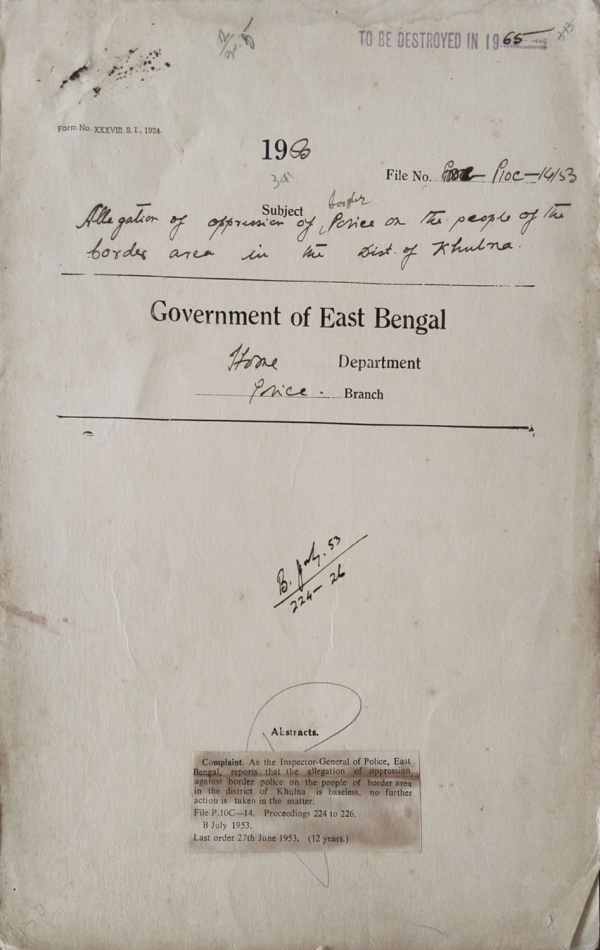 TO BE DESTROYED IN 1965
Form No. XXXVIII. S. I., 1924.
19
File No. P10C-14/53
Subject
border
Allegation of oppression of Police on the people of the
border area in the Dist. of Khulna.
Government of East Bengal
Home Department
Police. Branch
B. July. 53
224-26
Abstracts.
Complaint. As the Inspector-General of Police, East
Bengal, reports that the allegation of oppression
against border police on the people of border area
in the district of Khulna is baseless, no further
action is taken in the matter.
File P.10C—14. Proceedings 224 to 226.
B July 1953.
Last order 27th June 1953. (12 years.)